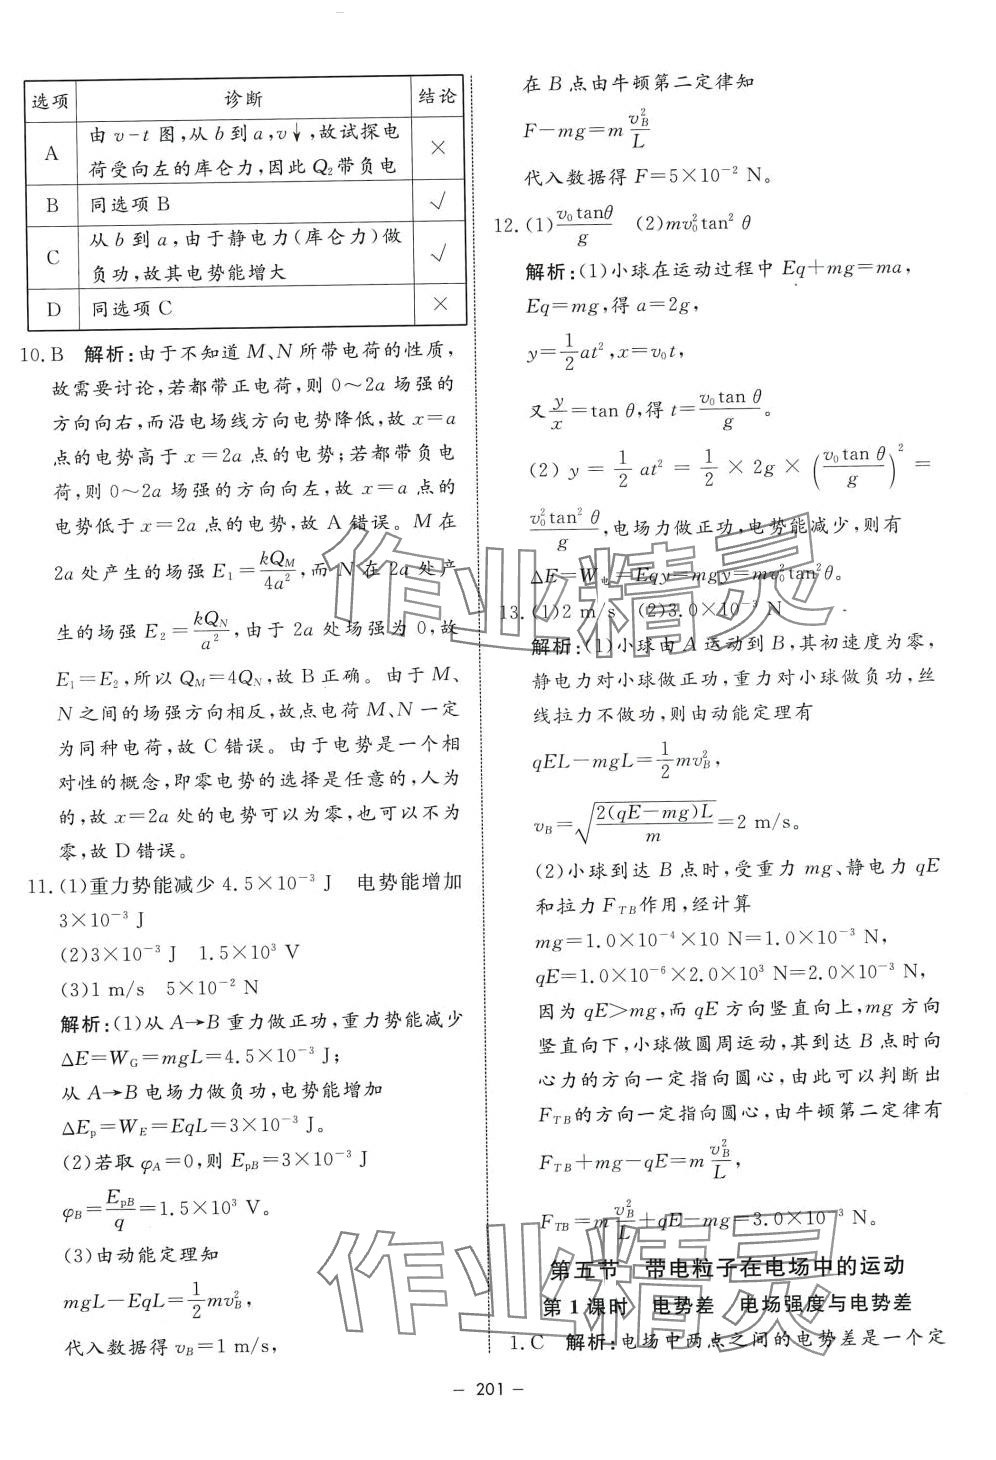 选项 诊断 结论
A 由 v-t 图,从 b 到 a,v↓,故试探电荷受向左的库仑力,因此 Q₂ 带负电 ×
B 同选项 B √
C 从 b 到 a,由于静电力(库仑力)做负功,故其电势能增大 √
D 同选项 C ×
10.B 解析:由于不知道 M、N 所带电荷的性质,
故需要讨论,若都带正电荷,则 0～2a 场强的
方向向右,而沿电场线方向电势降低,故 x=a
点的电势高于 x=2a 点的电势;若都带负电
荷,则 0～2a 场强的方向向左,故 x=a 点的
电势低于 x=2a 点的电势,故 A 错误。M 在
2a 处产生的场强 E₁=kQ_M/4a²,而 N 在 2a 处产
生的场强 E₂=kQ_N/a²,由于 2a 处场强为 0,故
E₁=E₂,所以 Q_M=4Q_N,故 B 正确。由于 M、
N 之间的场强方向相反,故点电荷 M、N 一定
为同种电荷,故 C 错误。由于电势是一个相
对性的概念,即零电势的选择是任意的,人为
的,故 x=2a 处的电势可以为零,也可以不为
零,故 D 错误。
11.(1)重力势能减少 4.5×10⁻³ J 电势能增加
3×10⁻³ J
(2)3×10⁻³ J 1.5×10³ V
(3)1 m/s 5×10⁻² N
解析:(1)从 A→B 重力做正功,重力势能减少
ΔE=W_G=mgL=4.5×10⁻³ J;
从 A→B 电场力做负功,电势能增加
ΔE_p=W_E=EqL=3×10⁻³ J。
(2)若取 φ_A=0,则 E_pB=3×10⁻³ J
φ_B=E_pB/q=1.5×10³ V。
(3)由动能定理知
mgL-EqL=1/2 mv_B²,
代入数据得 v_B=1 m/s,
在 B 点由牛顿第二定律知
F-mg=m v_B²/L
代入数据得 F=5×10⁻² N。
12.(1)v₀tanθ/g (2)mv₀²tan² θ
解析:(1)小球在运动过程中 Eq+mg=ma,
Eq=mg,得 a=2g,
y=1/2 at²,x=v₀t,
又 y/x=tan θ,得 t=v₀tan θ/g。
(2) y = 1/2 at² = 1/2 × 2g × (v₀tan θ/g)² =
v₀²tan² θ/g,电场力做正功,电势能减少,则有
ΔE=W电=Eqy=mgy=mv₀²tan²θ。
13.(1)2 m/s (2)3.0×10⁻³ N
解析:(1)小球由 A 运动到 B,其初速度为零,
静电力对小球做正功,重力对小球做负功,丝
线拉力不做功,则由动能定理有
qEL-mgL=1/2 mv_B²,
v_B=√(2(qE-mg)L/m)=2 m/s。
(2)小球到达 B 点时,受重力 mg、静电力 qE
和拉力 F_TB作用,经计算
mg=1.0×10⁻⁴×10 N=1.0×10⁻³ N,
qE=1.0×10⁻⁶×2.0×10³ N=2.0×10⁻³ N,
因为 qE>mg,而 qE 方向竖直向上,mg 方向
竖直向下,小球做圆周运动,其到达 B 点时向
心力的方向一定指向圆心,由此可以判断出
F_TB的方向一定指向圆心,由牛顿第二定律有
F_TB+mg-qE=m v_B²/L,
F_TB=m v_B²/L+qE-mg=3.0×10⁻³ N。
第五节 带电粒子在电场中的运动
第 1 课时 电势差 电场强度与电势差
1.C 解析:电场中两点之间的电势差是一个定
作业精灵
作业精灵
- 201 -